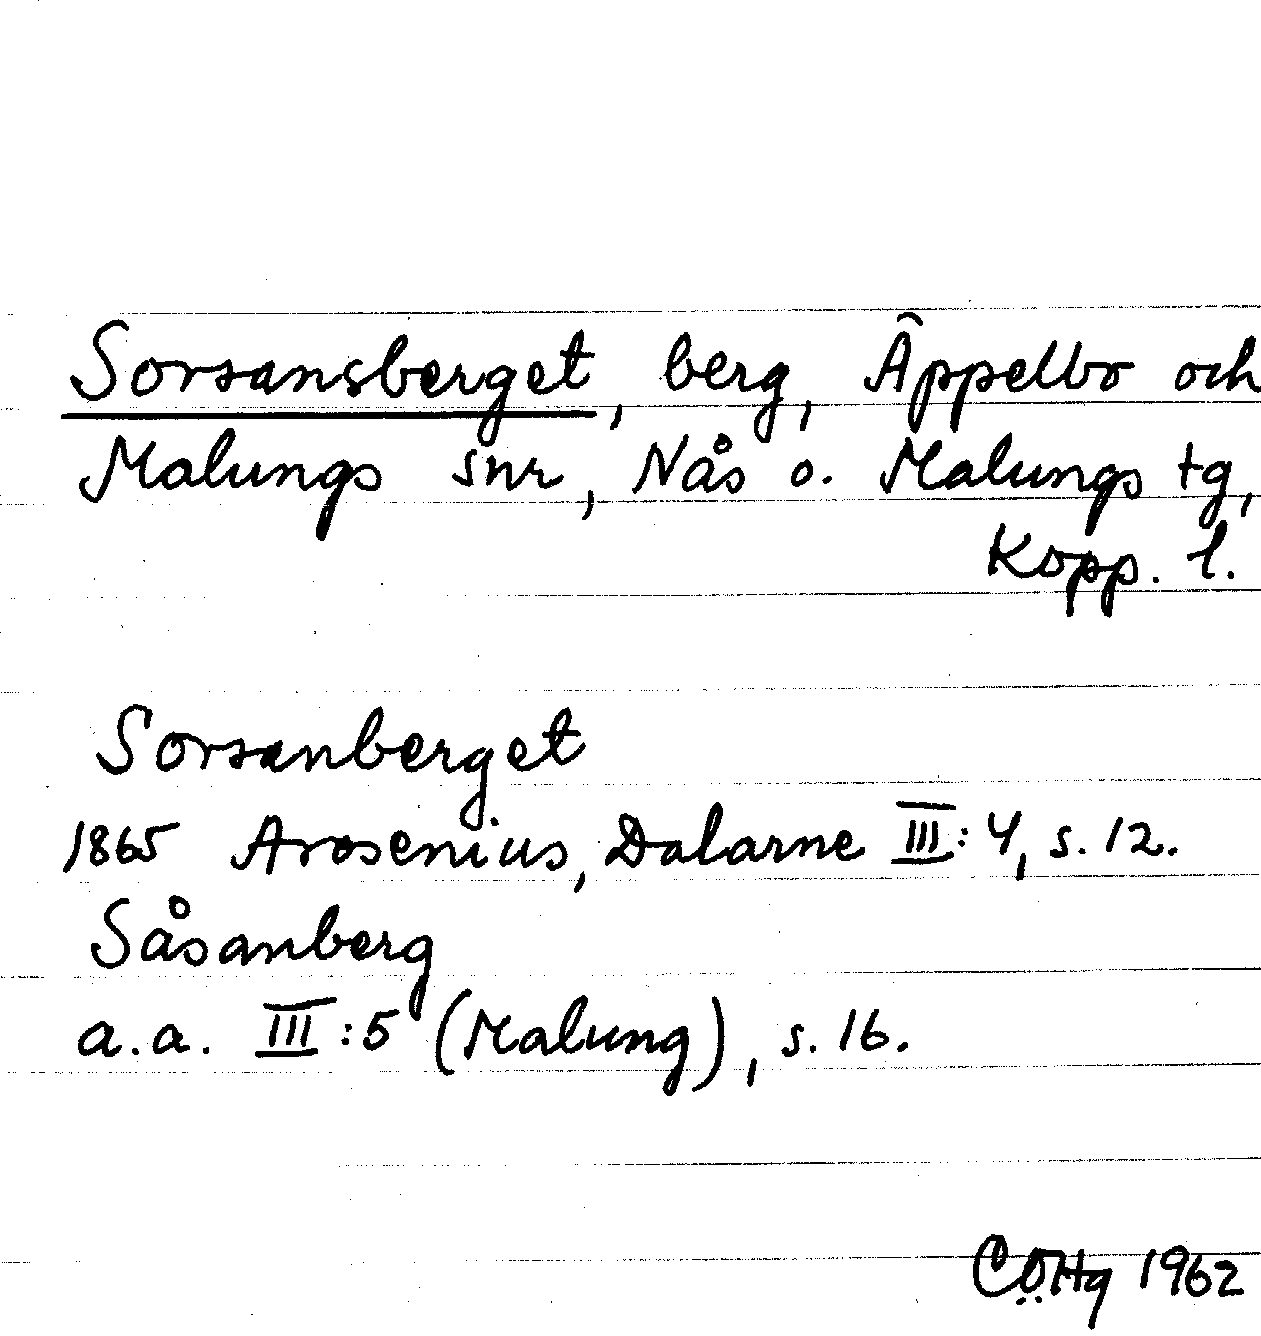 Sorsansberget, berg, Äppelbo och
Malungs snr, Nås o. Malungs tg,
Kopp. l.
Sorsanberget
1865 Arosenius, Dalarne III:4, s. 12.
Såsanberg
a.a. III:5 (Malung), s. 16.
CÖHg 1962